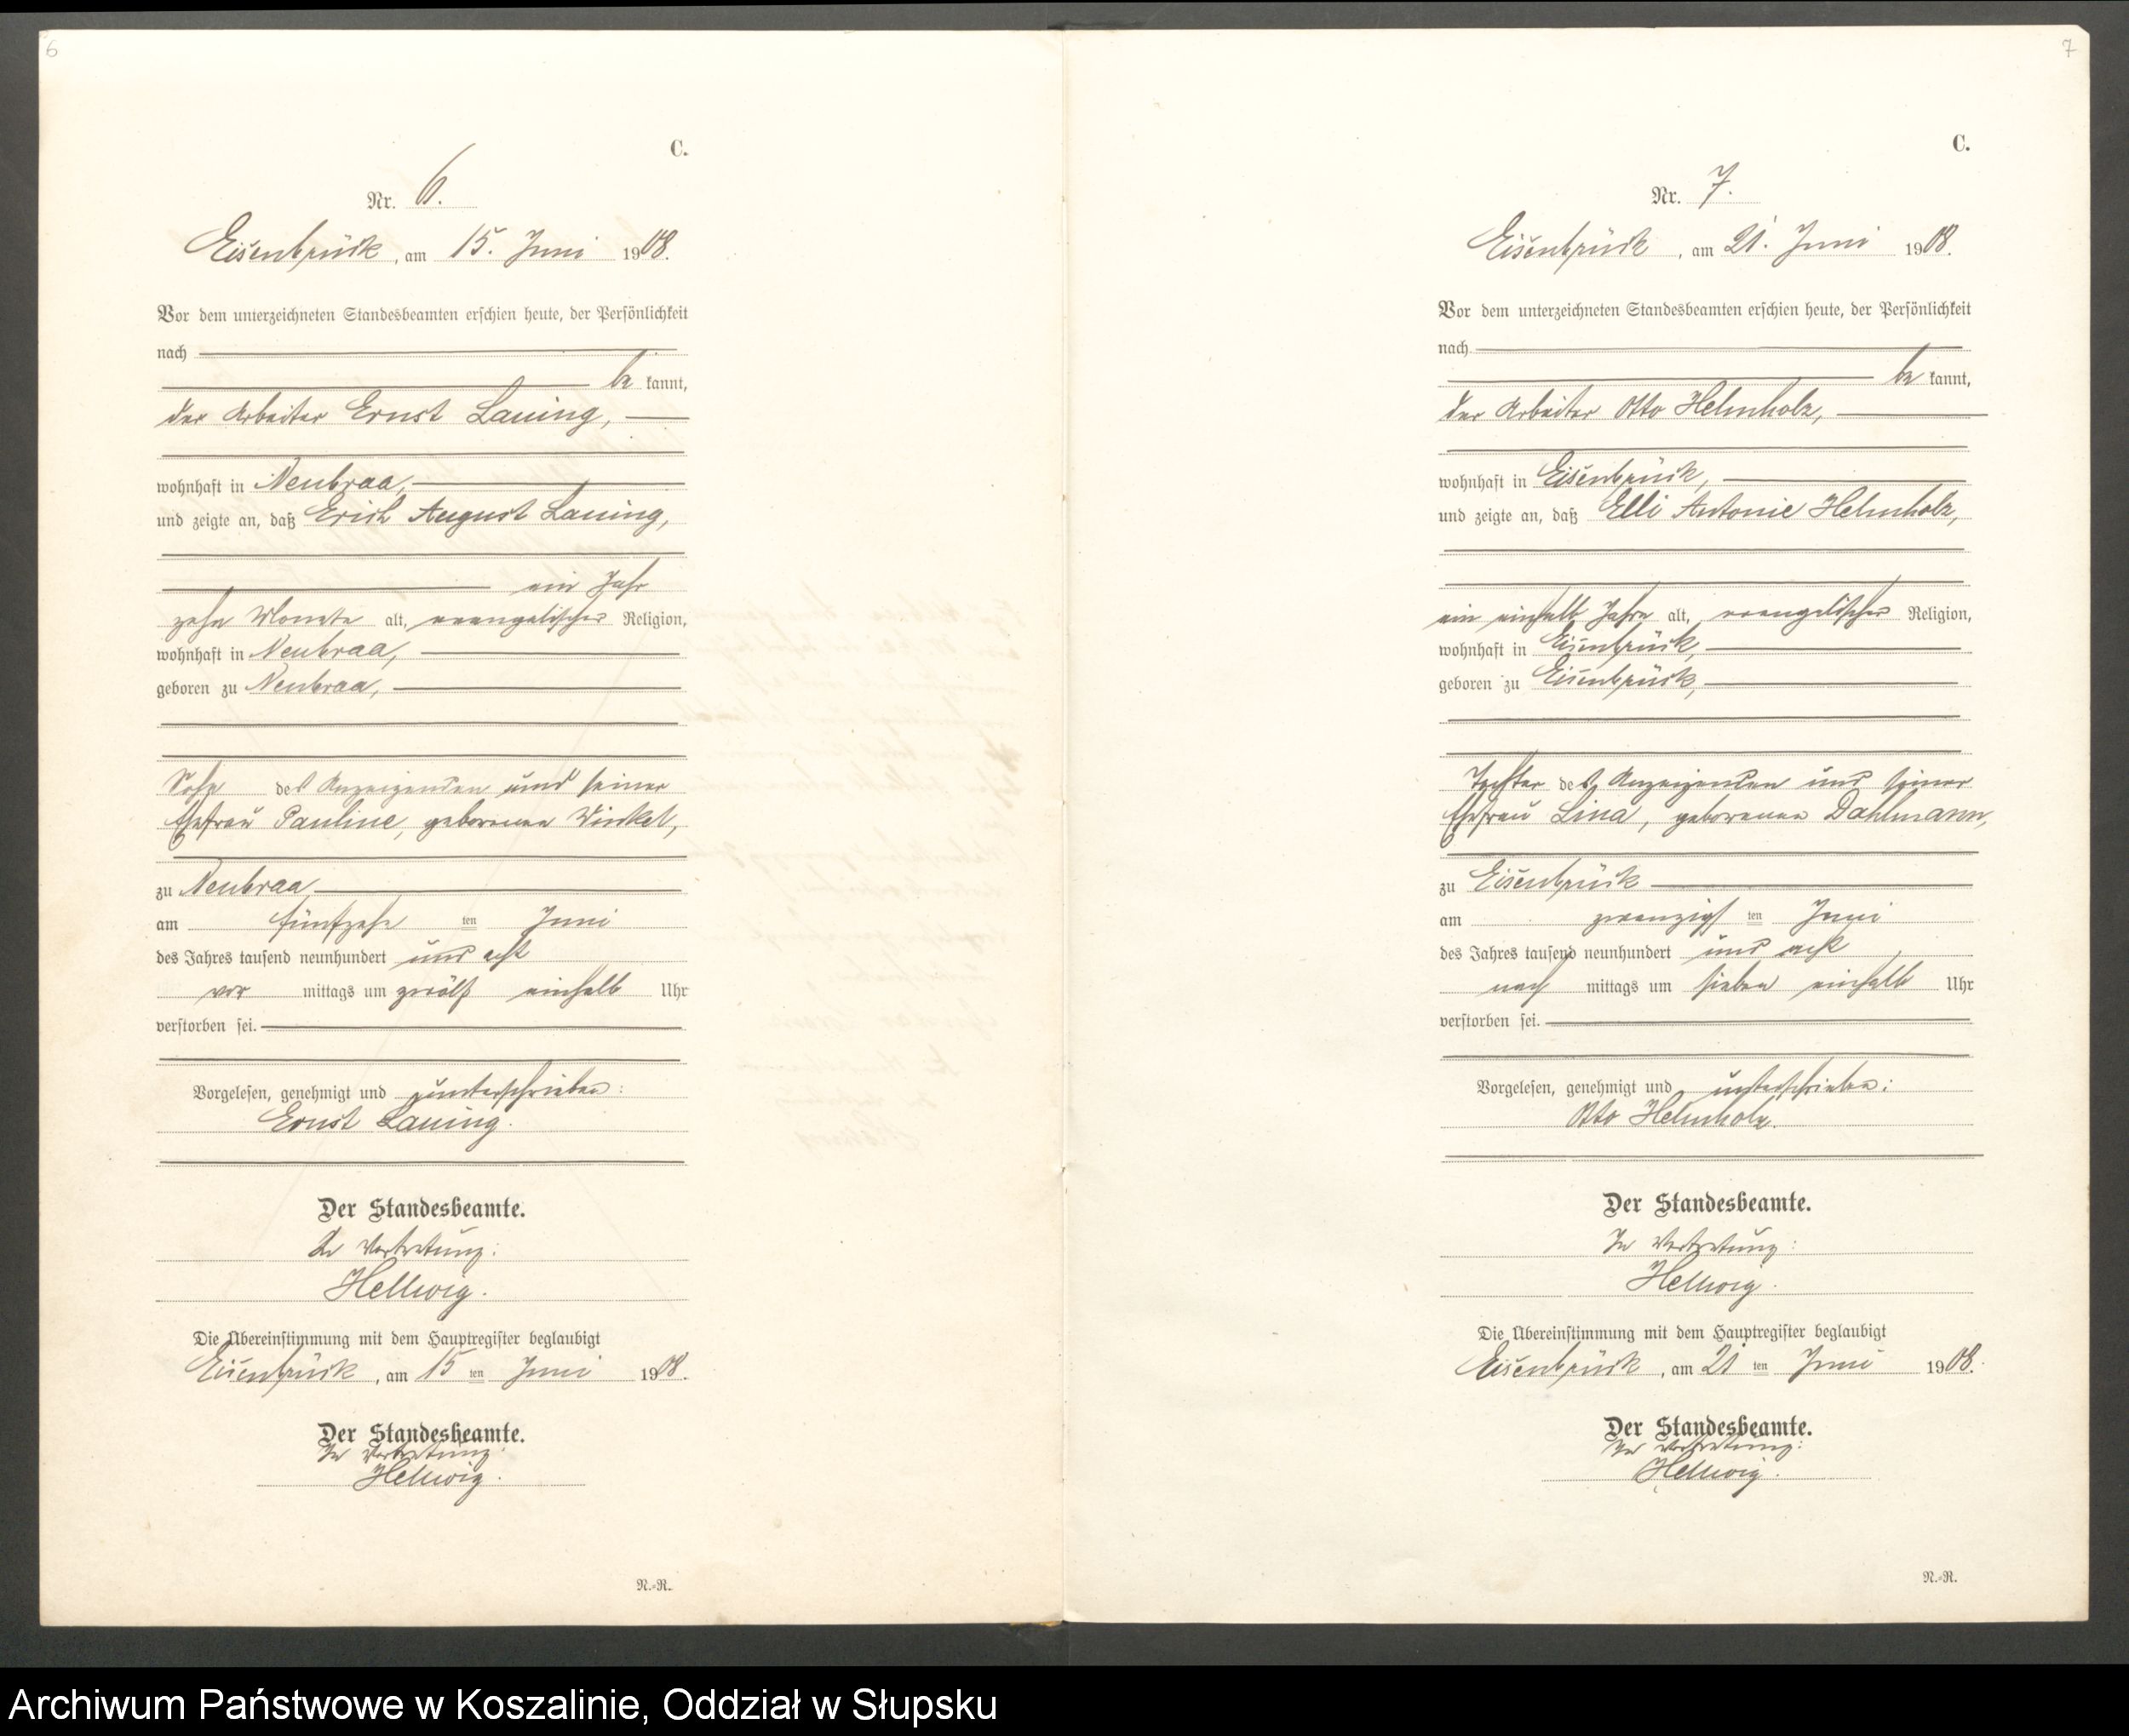 6
C.
Nr. 6.
Eisenbrück, am 15. Juni 1908.
Vor dem unterzeichneten Standesbeamten erschien heute, der Persönlichkeit
nach
be kannt,
der Arbeiter Ernst Lauing,
wohnhaft in Neubraa,
und zeigte an, daß Erich August Lauing,
ein Jahr
zehn Monate alt, evangelischer Religion,
wohnhaft in Neubraa,
geboren zu Neubraa,
Sohn des Anzeigenden und seiner
Ehefrau Pauline, geborenen Winkel,
zu Neubraa
am fünfzehn ten Juni
des Jahres tausend neunhundert und acht
vor mittags um zwölf einhalb Uhr
verstorben sei.
Vorgelesen, genehmigt und unterschrieben:
Ernst Lauing.
Der Standesbeamte.
In Vertretung:
Hellwig.
Die Übereinstimmung mit dem Hauptregister beglaubigt
Eisenbrück, am 15 ten Juni 1908.
Der Standesbeamte.
In Vertretung:
Hellwig.
N.-R.
7
C.
Nr. 7.
Eisenbrück, am 21. Juni 1908.
Vor dem unterzeichneten Standesbeamten erschien heute, der Persönlichkeit
nach
be kannt,
der Arbeiter Otto Helmholz,
wohnhaft in Eisenbrück,
und zeigte an, daß Elli Antonie Helmholz,
ein einhalb Jahre alt, evangelischer Religion,
wohnhaft in Eisenbrück,
geboren zu Eisenbrück,
Tochter des Anzeigenden und seiner
Ehefrau Lina, geborenen Dahlmann,
zu Eisenbrück
am zwanzigs ten Juni
des Jahres tausend neunhundert und acht
nach mittags um sieben einhalb Uhr
verstorben sei.
Vorgelesen, genehmigt und unterschrieben:
Otto Helmholz.
Der Standesbeamte.
In Vertretung:
Hellwig.
Die Übereinstimmung mit dem Hauptregister beglaubigt
Eisenbrück, am 21 ten Juni 1908.
Der Standesbeamte.
In Vertretung:
Hellwig.
N.-R.
Archiwum Państwowe w Koszalinie, Oddział w Słupsku